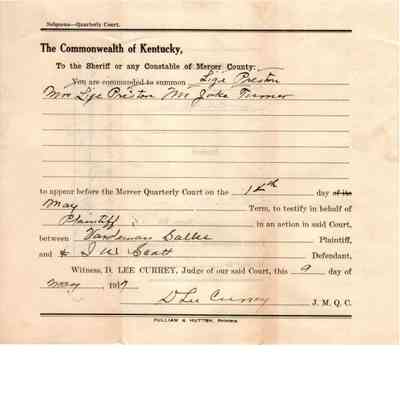 Subpoena—Quarterly Court.
The Commonwealth of Kentucky,
To the Sheriff or any Constable of Mercer County:
You are commanded to summon Lige Preston
Mrs Lige Preston Mr Jake Turner
to appear before the Mercer Quarterly Court on the 12th day of the
May Term, to testify in behalf of
Plaintiff in an action in said Court,
between Vardeman Plaintiff,
and J W Scott Defendant,
Witness, D. LEE CURREY, Judge of our said Court, this 9 day of
May, 1917
D Lee Currey J. M. Q. C.
PULLIAM & HUTTON, Printers